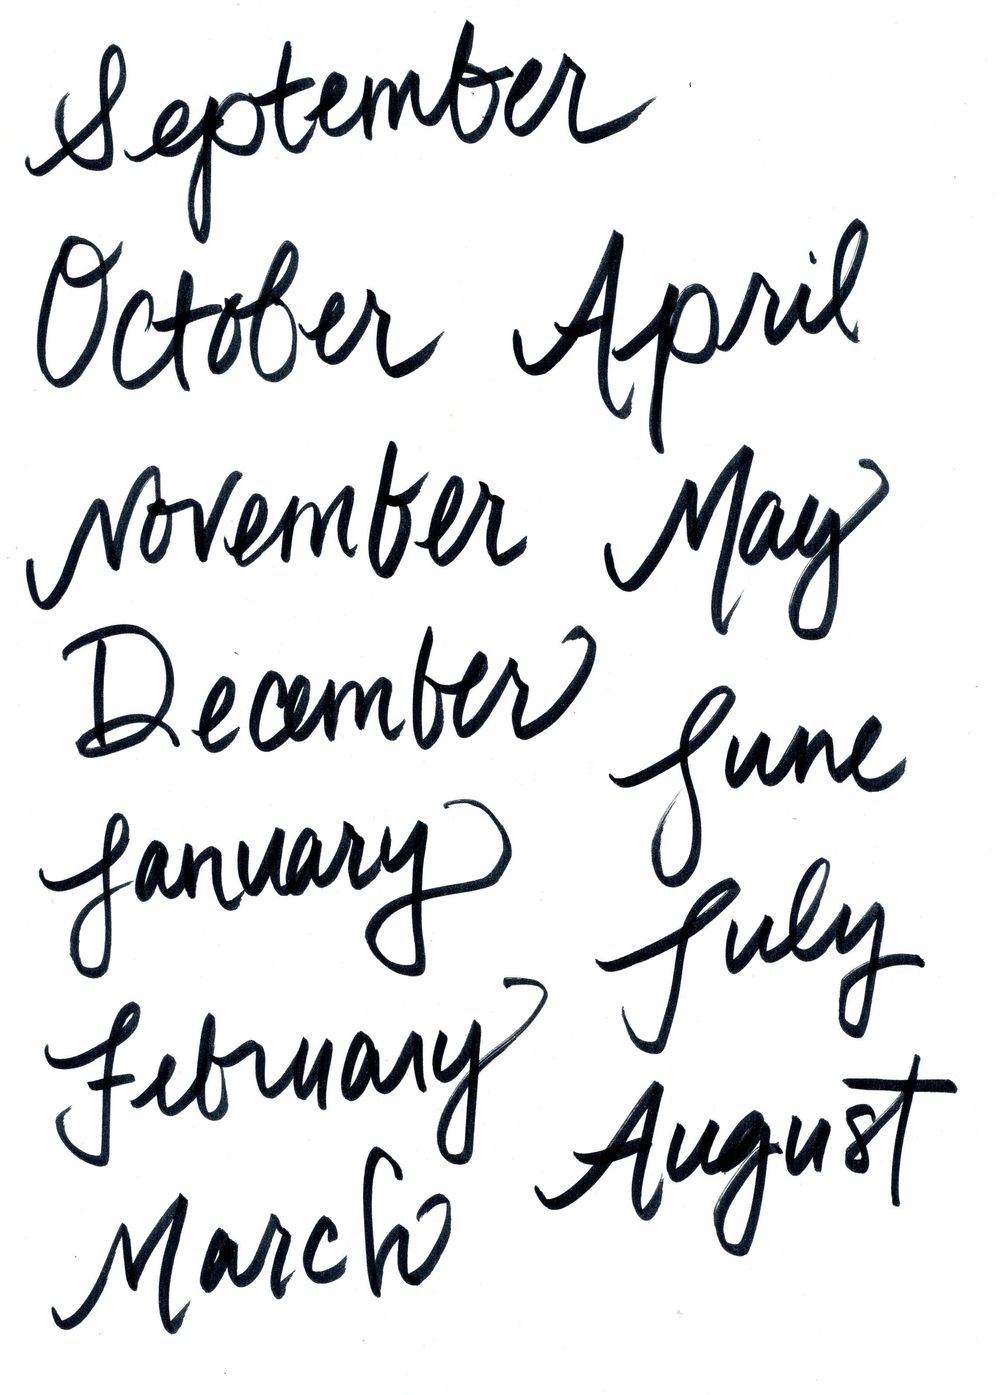 September
October
November
December
January
February
March
April
May
June
July
August